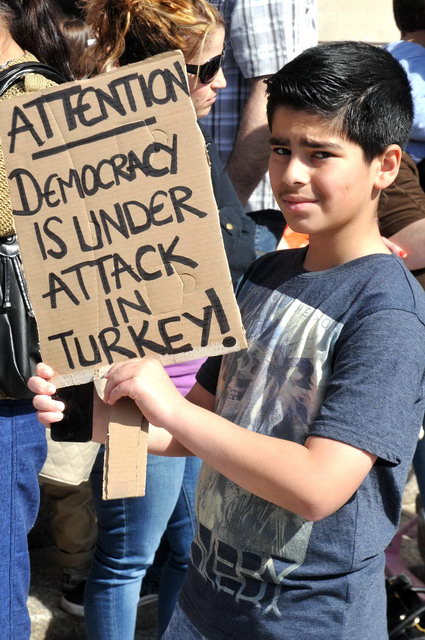 ATTENTION
DEMOCRACY
IS UNDER
ATTACK
IN
TURKEY!